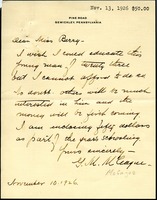 Nov. 13, 1926 $50.00
PINE ROAD
SEWICKLEY, PENNSYLVANIA
Dear Miss Berry-
I wish I could educate this
young man of twenty three
but I cannot afford to do so
No doubt others will be much
interested in him and the
money will be forth coming
I am inclosing fifty dollars
as part of the years schooling
Yours sincerely-
G. M. McCague
November 10- 1926